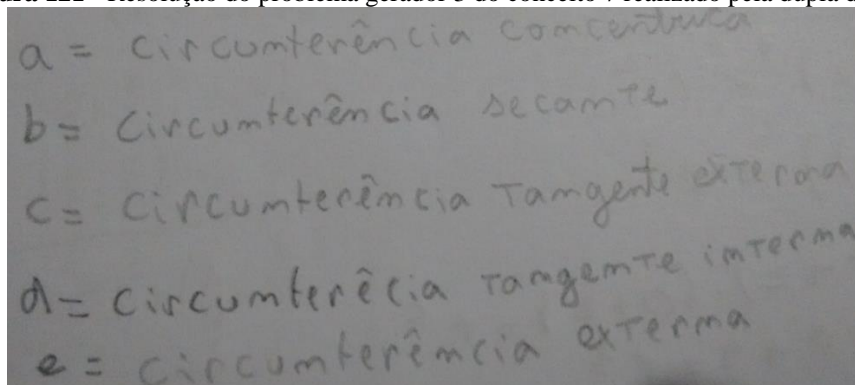 Resolução do problema gerador 3 do conceito 7 realizado pela dupla
a = circumferência comcentrica
b = Circumferência secamte
c = Circumferência Tamgente externa
d = circumferêcia tamgemte interma
e = circumferêmcia exterma